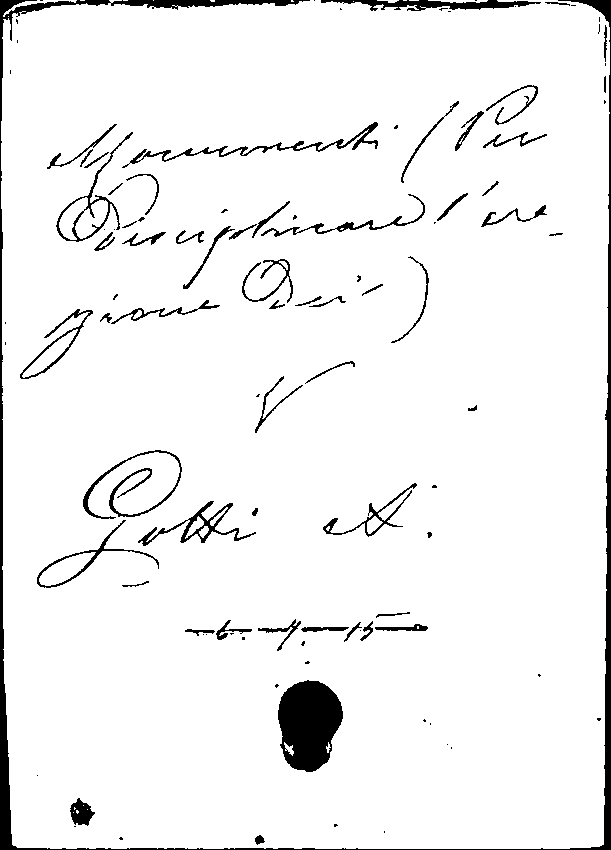 Monumenti (Per
Disciplinare l'ere-
zione Dei)
V
Gotti A.
6. 7. 15